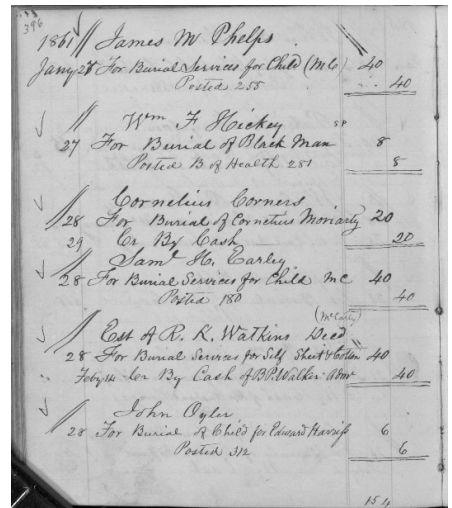 396
1861 James M Phelps
Jany 28 For Burial Services for Child (Mc) 40
Posted 255 40
Wm F Hickey
27 For Burial of Black Man 8
Posted B of Health 281 8
Cornelius Corners
28 For Burial of Cornelius Moriarty 20
29 Cr By Cash 20
Saml H. Earley
28 For Burial Services for Child Mc 40
Posted 180 40
(McCarty)
Est of R. K. Watkins Decd
28 For Burial Services for Self Sheet & Coffin 40
Feby 14 Cr By Cash of B P Walker Admr 40
John Oyler
28 For Burial of Child for Edward Harriss 6
Posted 312 6
154